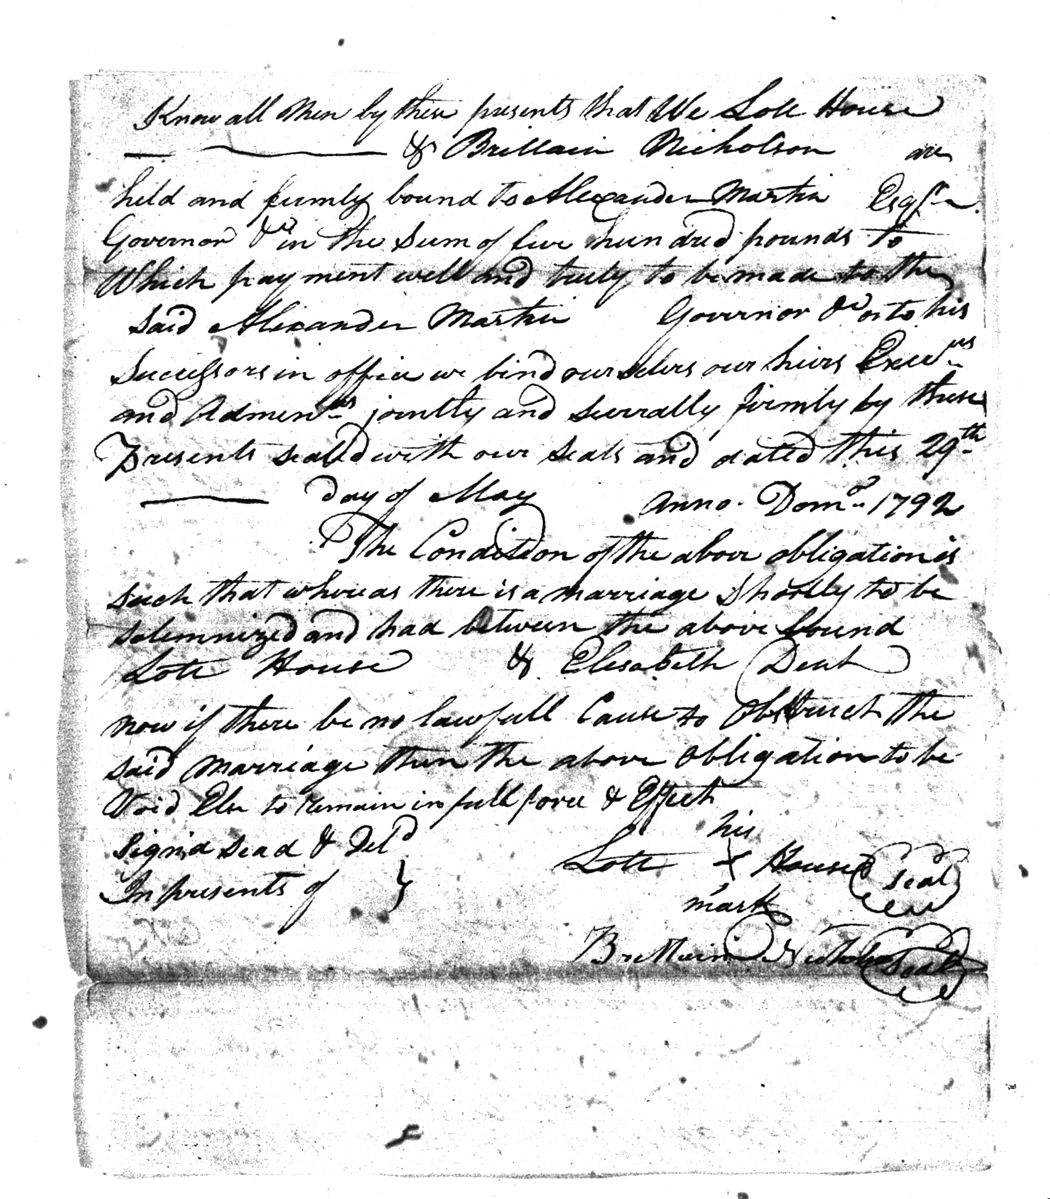 Know all Men by these presents that We Lott House
& Brittain Nicholson are
held and firmly bound to Alexander Martin Esqr.
Governor &c in the Sum of five hundred pounds to
Which payment well and truly to be made to the
said Alexander Martin Governor &c or to his
Successors in office we bind ourselves our heirs Execurs
and Adminrs jointly and severally firmly by these
Presents sealed with our seals and dated this 29th
day of May Anno. Domo. 1792
The Condition of the above obligation is
such that whereas there is a marriage Shortly to be
solemnized and had between the above bound
Lott House & Elisabeth Dent
now if there be no lawfull Cause to Obstruct the
said marriage then the above Obligation to be
Void Else to remain in full force & Effect
Signd Sead & Deld
In presents of }
his
Lott X House Seal
mark
Brittain Nicholson Seal